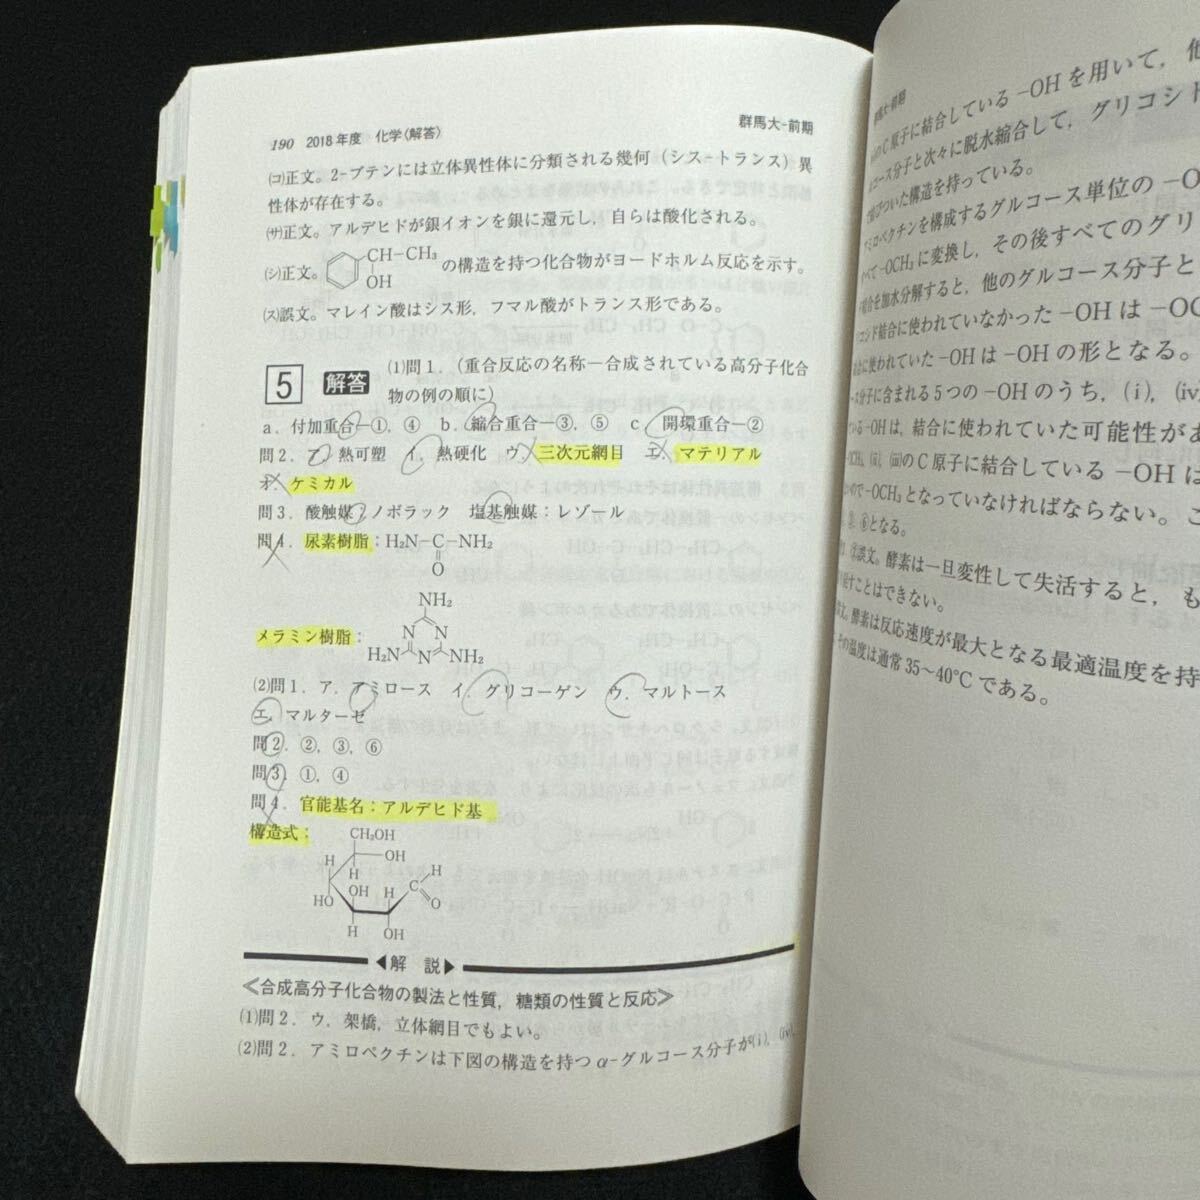 190 2018年度 化学〈解答〉
群馬大-前期
㈡正文。2-ブテンには立体異性体に分類される幾何（シス-トランス）異
性体が存在する。
㈚正文。アルデヒドが銀イオンを銀に還元し，自らは酸化される。
㈛正文。 CH-CH₃ OH の構造を持つ化合物がヨードホルム反応を示す。
㈜誤文。マレイン酸はシス形，フマル酸がトランス形である。
5 解答 (1)問1．（重合反応の名称―合成されている高分子化合
物の例の順に）
a．付加重合―①，④ b．縮合重合―③，⑤ c．開環重合―②
問2．ア．熱可塑 イ．熱硬化 ウ．三次元網目 エ．マテリアル
オ．ケミカル
問3．酸触媒：ノボラック 塩基触媒：レゾール
問4．尿素樹脂：H₂N-C-NH₂
O
NH₂
メラミン樹脂： N N
H₂N N NH₂
(2)問1．ア．アミロース イ．グリコーゲン ウ．マルトース
エ．マルターゼ
問2．②，③，⑥
問3．①，④
問4．官能基名：アルデヒド基
構造式： CH₂OH
H OH H
H C
HO OH H O
H OH
◀解 説▶
≪合成高分子化合物の製法と性質，糖類の性質と反応≫
(1)問2．ウ．架橋，立体網目でもよい。
(2)問2．アミロペクチンは下図の構造を持つα-グルコース分子が(i)，(iv)，
群馬大-前期
C原子に結合している-OHを用いて，他
コース分子と次々に脱水縮合して，グリコシド
びついた構造を持っている。
アミロペクチンを構成するグルコース単位の-O
べて-OCH₃に変換し，その後すべてのグリ
結合を加水分解すると，他のグルコース分子と
コシド結合に使われていなかった-OHは-OC
に使われていた-OHは-OHの形となる。
ース分子に含まれる5つの-OHのうち，(i)，(iv)
ている-OHは，結合に使われていた可能性があ
OCH₃，(ii)，(iii)のC原子に結合している-OHは
ので-OCH₃となっていなければならない。こ
⑥となる。
②誤文。酵素は一旦変性して失活すると，も
すことはできない。
文。酵素は反応速度が最大となる最適温度を持
その温度は通常35～40℃である。